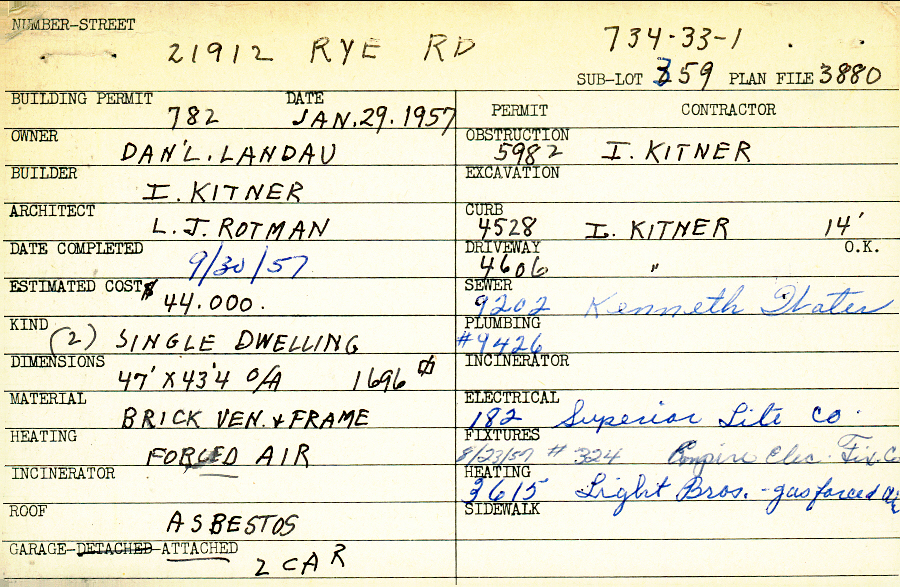 NUMBER-STREET
21912 RYE RD
734-33-1
SUB-LOT 359 PLAN FILE 3880
BUILDING PERMIT DATE
782 JAN. 29. 1957
OWNER
DAN'L. LANDAU
BUILDER
I. KITNER
ARCHITECT
L. J. ROTMAN
DATE COMPLETED
9/30/57
ESTIMATED COST $
44.000.
KIND
(2) SINGLE DWELLING
DIMENSIONS
47' X 43'4 O/A 1696
MATERIAL
BRICK VEN. + FRAME
HEATING
FORCED AIR
INCINERATOR
ROOF
ASBESTOS
GARAGE-DETACHED-ATTACHED
2 CAR
PERMIT CONTRACTOR
OBSTRUCTION
5982 I. KITNER
EXCAVATION
CURB
4528 I. KITNER 14'
DRIVEWAY O.K.
4606 "
SEWER
9202 Kenneth
PLUMBING
#9426
INCINERATOR
ELECTRICAL
182 Superior Lite Co.
FIXTURES
8/23/57 # 324 Empire Elec. Fix Co
HEATING
3615 Light Bros. - gas forced air
SIDEWALK